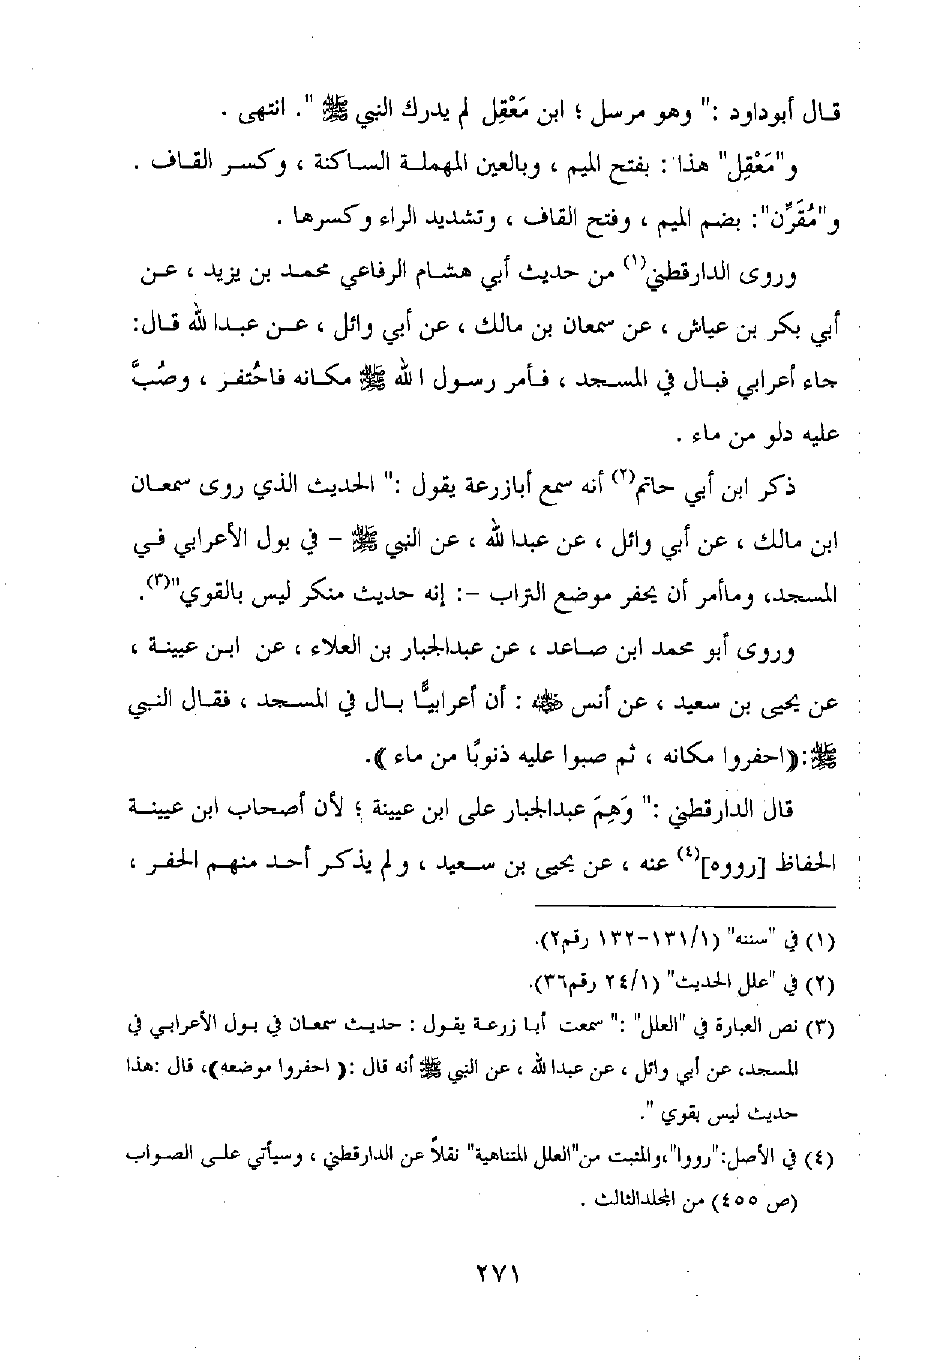 قال أبوداود :" وهو مرسل ؛ ابن مَعْقِل لم يدرك النبي ﷺ ". انتهى .
و"مَعْقِل" هذا : بفتح الميم ، وبالعين المهملة الساكنة ، وكسر القاف .
و"مُقَرِّن": بضم الميم ، وفتح القاف ، وتشديد الراء وكسرها .
وروى الدارقطني(١) من حديث أبي هشام الرفاعي محمد بن يزيد ، عن
أبي بكر بن عياش ، عن سمعان بن مالك ، عن أبي وائل ، عن عبدالله قال:
جاء أعرابي فبال في المسجد ، فأمر رسول الله ﷺ مكانه فاحُتفر ، وصُبَّ
عليه دلو من ماء .
ذكر ابن أبي حاتم(٢) أنه سمع أبازرعة يقول :" الحديث الذي روى سمعان
ابن مالك ، عن أبي وائل ، عن عبدالله ، عن النبي ﷺ - في بول الأعرابي في
المسجد، وماأمر أن يحفر موضع التراب -: إنه حديث منكر ليس بالقوي"(٣).
وروى أبو محمد ابن صاعد ، عن عبدالجبار بن العلاء ، عن ابن عيينة ،
عن يحيى بن سعيد ، عن أنس رضي الله عنه : أن أعرابيًّا بال في المسجد ، فقال النبي
ﷺ:((احفروا مكانه ، ثم صبوا عليه ذنوبًا من ماء )).
قال الدارقطني :" وَهِمَ عبدالجبار على ابن عيينة ؛ لأن أصحاب ابن عيينة
الحفاظ [رووه](٤) عنه ، عن يحيى بن سعيد ، و لم يذكر أحد منهم الحفر ،
(١) في "سننه" (١٣١/١-١٣٢ رقم٢).
(٢) في "علل الحديث" (٢٤/١ رقم٣٦).
(٣) نص العبارة في "العلل" :" سمعت أبا زرعة يقول : حديث سمعان في بول الأعرابي في
المسجد، عن أبي وائل ، عن عبدالله ، عن النبي ﷺ أنه قال :( احفروا موضعه)، قال :هذا
حديث ليس بقوي ".
(٤) في الأصل:"رووا"،والمثبت من"العلل المتناهية" نقلاً عن الدارقطني ، وسيأتي على الصواب
(ص ٤٥٥) من المجلدالثالث .
٢٧١